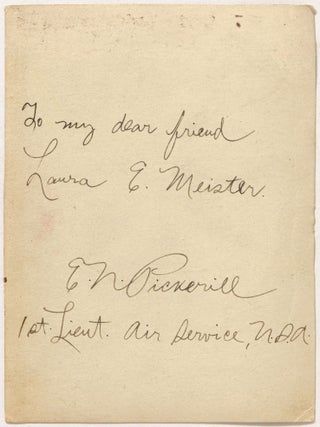 To my dear friend
Laura E. Meister.
E. N. Pickerill
1st. Lieut. Air Service, U.S.A.